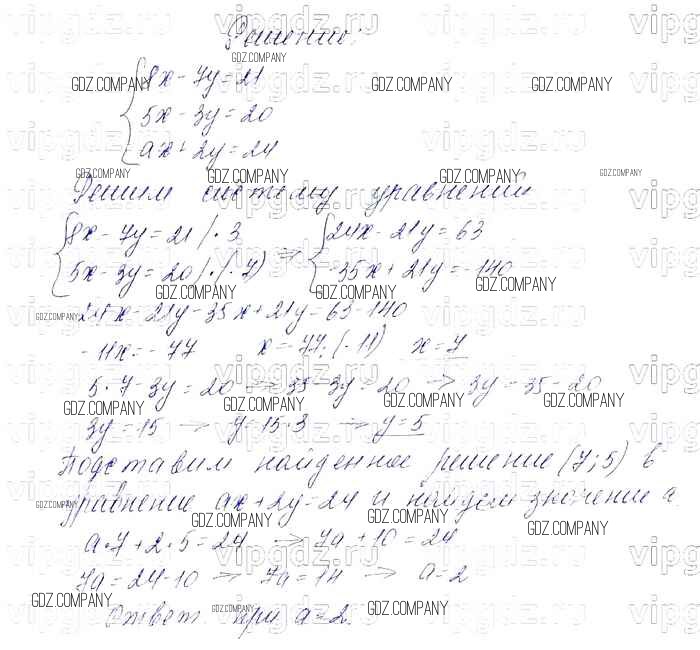 Решение:
8x - 7y = 21
5x - 3y = 20
ax + 2y = 24
Решим систему уравнений
8x - 7y = 21 | · 3 => 24x - 21y = 63
5x - 3y = 20 | · (-7) -35x + 21y = -140
24x - 21y - 35x + 21y = 63 - 140
-11x = -77 x = -77 : (-11) x = 7
5 · 7 - 3y = 20 -> 35 - 3y = 20 -> 3y = 35 - 20
3y = 15 -> y = 15 : 3 -> y = 5
Подставим найденное решение (7; 5) в
уравнение ax + 2y = 24 и найдем значение a
a · 7 + 2 · 5 = 24 -> 7a + 10 = 24
7a = 24 - 10 -> 7a = 14 -> a = 2
Ответ при a = 2.